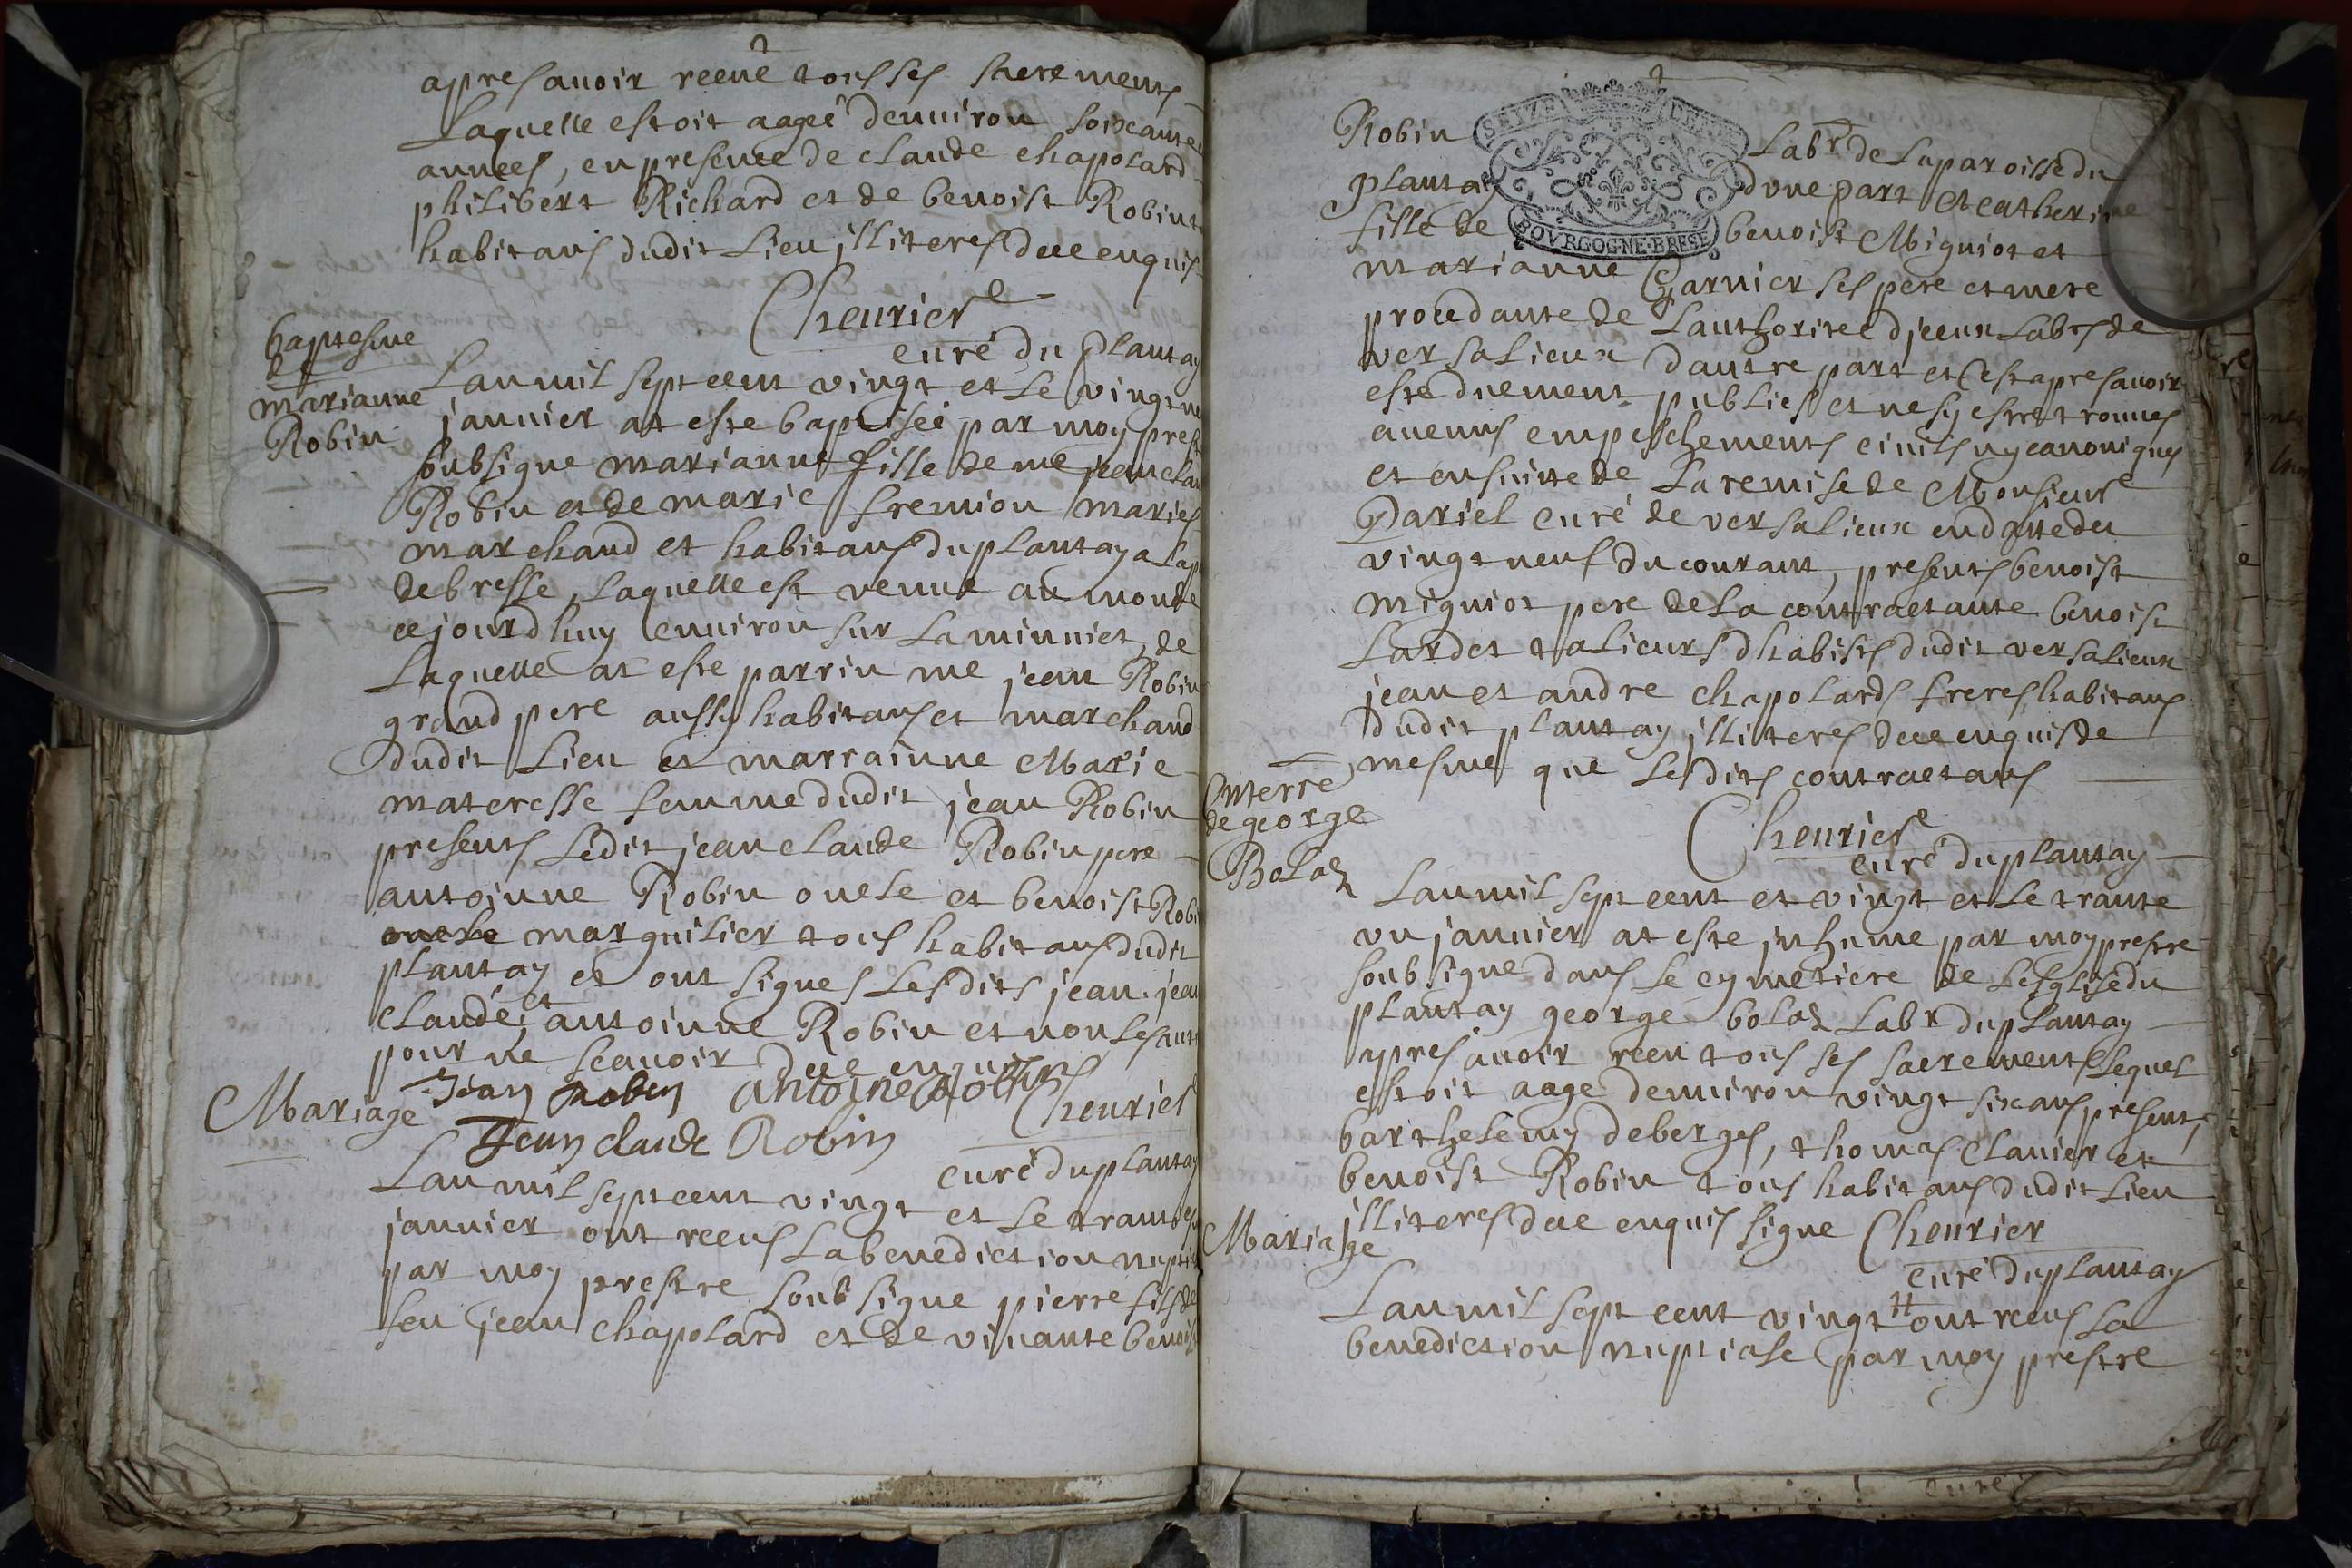 apres avoir receue tous ses sacrements
Laquelle estoit aagée denviron soixante
années, en presence de claude chapolard
philibert Richard et de benoist Robint
habitans dudit Lieu jlliteres dece enquis
Cheurier
curé du plantay
baptesme
de
marianne
Robin
Lan mil sept cent vingt et Le vingt
janvier at este baptisée par moy prest
soubsigne marianne fille de me jean clau
Robin et de marie fremion maries
marchand et habitans du plantay
de bresse, Laquelle est venue au monde
ce jourdhuy environ sur La minuict, de
Laquelle at este parrin me jean Robin
grand pere aussy habitans et marchand
dudit Lieu et marrainne Marie
materesse femme dudit jean Robin
presents Ledit jean claude Robin pere
antoinne Robin oncle et benoist Robi
marguilier tous habitans dudit
plantay et ont signes Lesdits jean. jean
claude et antoinne Robin et non Les aut
pour ne scavoir dece enquis
Jean Robin antoine Robin Cheurier
Jean claude Robin
curé du plantay
Mariage
Lan mil sept cent vingt et Le trante
janvier ont receus La benediction nupti
par moy prestre soubsigne pierre fils de
feu jean chapolard et de vivante benoi
Robin
SEIZE DENIE
BOVRGOGNE·BRESE
Labr de La paroisse du
plantay dune part et catherine
fille de benoist Migniot et
marianne Garnier ses pere et mere
procedante de Lauthoritee djceux Labrs de
versalieux dautre part et cest apres avoir
este duement publies et ne sy estre trouves
aucuns empeschements civils ny canoniques
et ensuitte de La remise de Monsieur
Dariel curé de versalieux en datte du
vingt neuf du courant, presents benoist
migniot pere de La contractante benoist
Lardet talieurs dhabits dudit versalieux
jean et andre chapolards freres habitans
dudit plantay jlliteres dece enquis de
mesme que Lesdits contractans
Cheurier
curé du plantay
Enterre
de george
Bolaz
Lan mil sept cent et vingt et Le trante
un janvier at este jnhume par moy prestre
soubsigne dans Le cymetiere de LEglise du
plantay george bolaz Labr du plantay
apres avoir receu tous ses sacrements Lequel
estoit aage denviron vingt six ans, presents
barthelemy deberges, thomas clavier et
benoist Robin tous habitans dudit Lieu
jlliteres dece enquis signe Cheurier
curé du plantay
Mariage
Lan mil sept cent vingt # ont receus La
benediction nuptiale par moy prestre